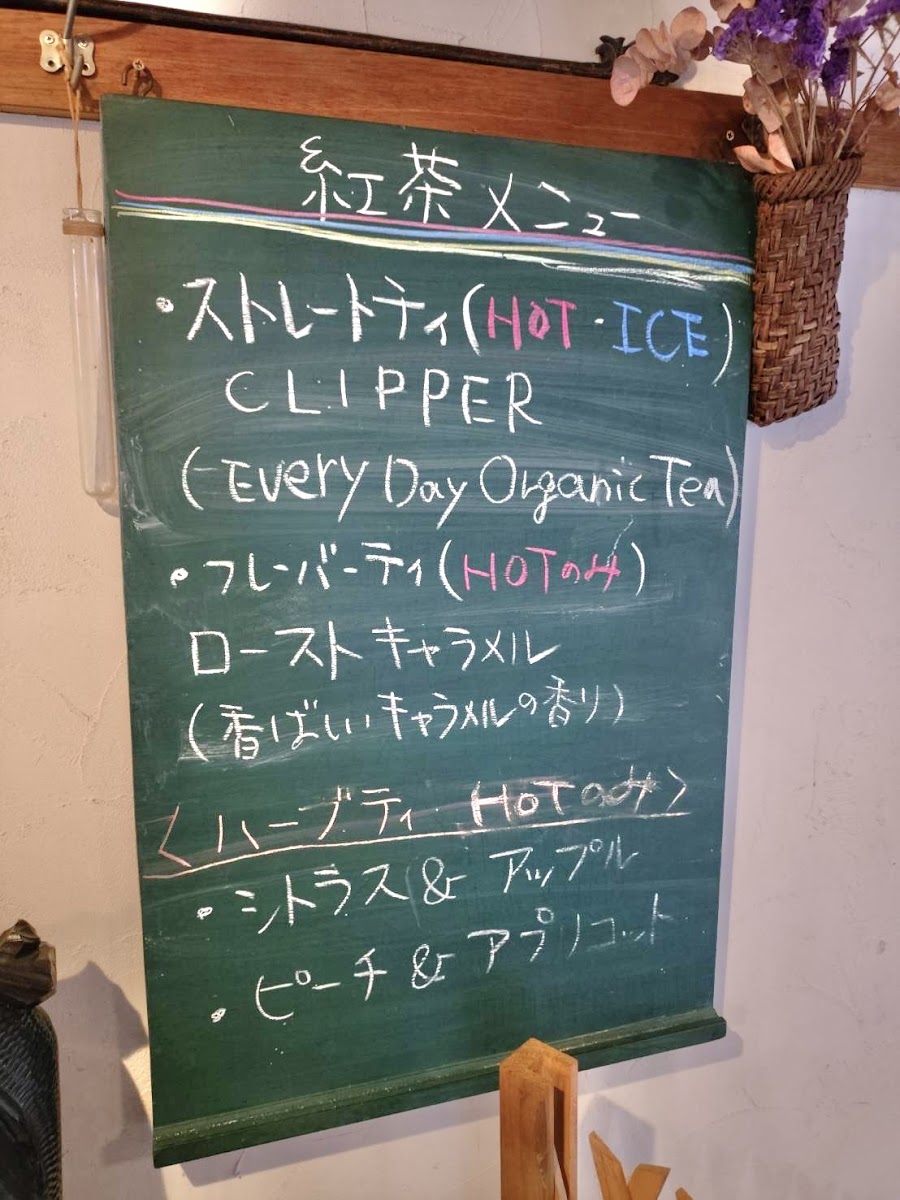 紅茶メニュー
・ストレートティ(HOT・ICE)
CLIPPER
(Every Day Organic Tea)
・フレーバーティ(HOTのみ)
ローストキャラメル
(香ばしいキャラメルの香り)
〈ハーブティ HOTのみ〉
・シトラス&アップル
・ピーチ&アプリコット